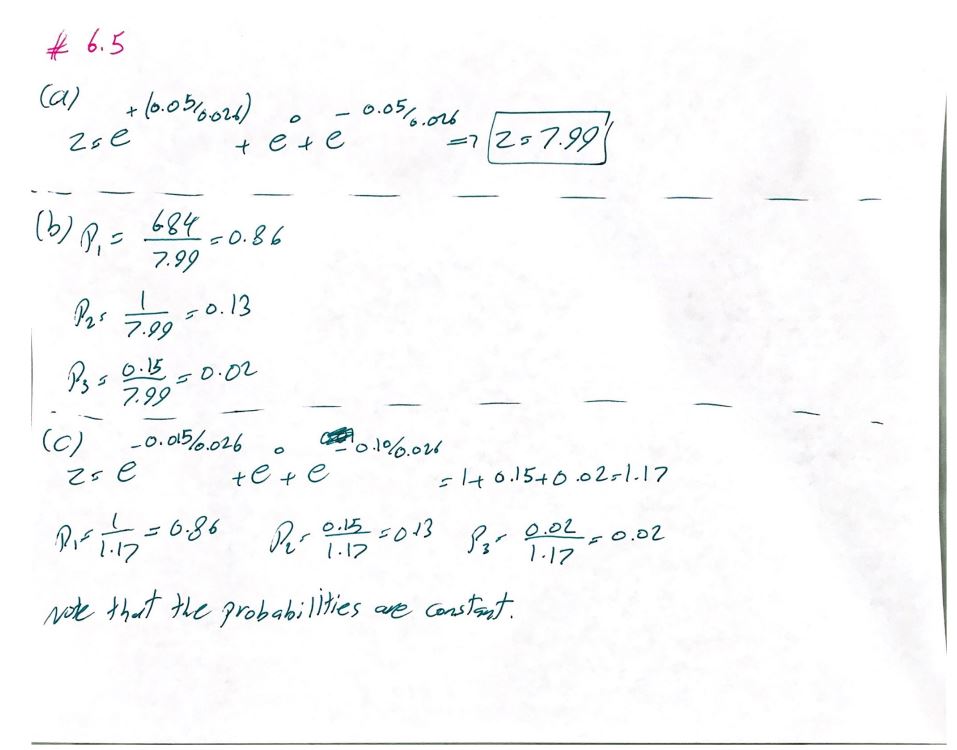 # 6.5
(a) z = e^{+(0.05/0.026)} + e^0 + e^{-0.05/0.026} => z = 7.99
(b) P₁ = 684/7.99 = 0.86
P₂ = 1/7.99 = 0.13
P₃ = 0.15/7.99 = 0.02
(c) z = e^{-0.015/0.026} + e^0 + e^{-0.10/0.026} = 1 + 0.15 + 0.02 = 1.17
P₁ = 1/1.17 = 0.86 P₂ = 0.15/1.17 = 0.13 P₃ = 0.02/1.17 = 0.02
Note that the probabilities are constant.